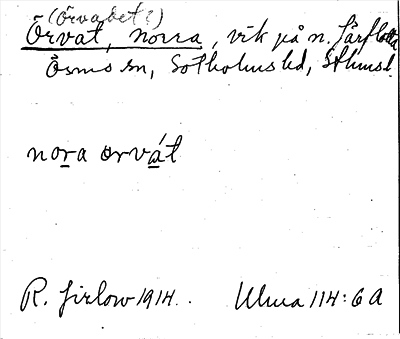 (Örvabet?)
Örvat, norra, vik på n. Fårflotta
Ösmo sn, Sotholms hd, Sthms l.
nora orvát
R. Firlow 1914. Ulma 114:6A